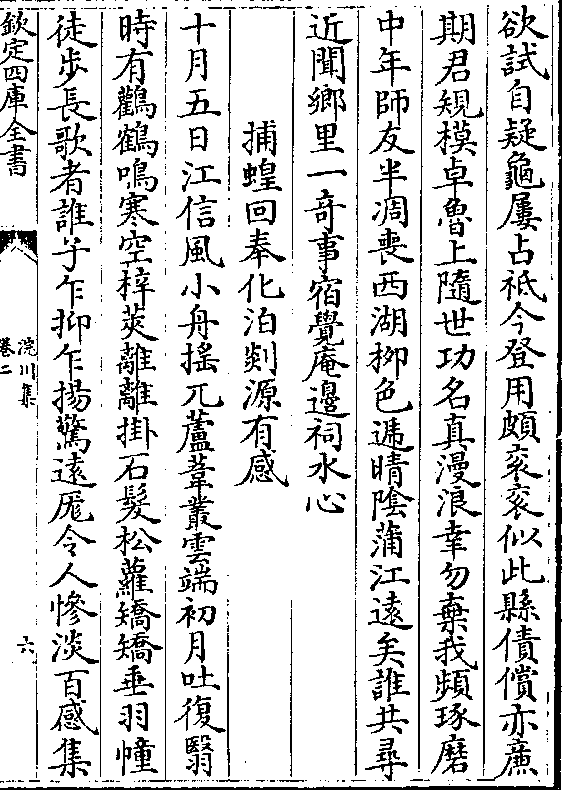 欲試自疑龜屢占祗今登用頗衮衮似此縣債償亦亷
期君䂓模卓魯上隨世功名真漫浪幸勿棄我頻琢磨
中年師友半凋喪西湖柳色遞晴陰蒲江遠矣誰共尋
近聞鄉里一竒事宿覺庵邊祠水心
捕蝗回奉化泊剡源有感
十月五日江信風小舟揺兀蘆葦叢雲端初月吐復翳
時有鸛鶴鳴寒空梓莢離離掛石髮松蘿矯矯垂羽幢
徒歩長歌者誰子乍抑乍揚驚遠厖令人慘淡百感集
欽定四庫全書
浣川集
卷二
六